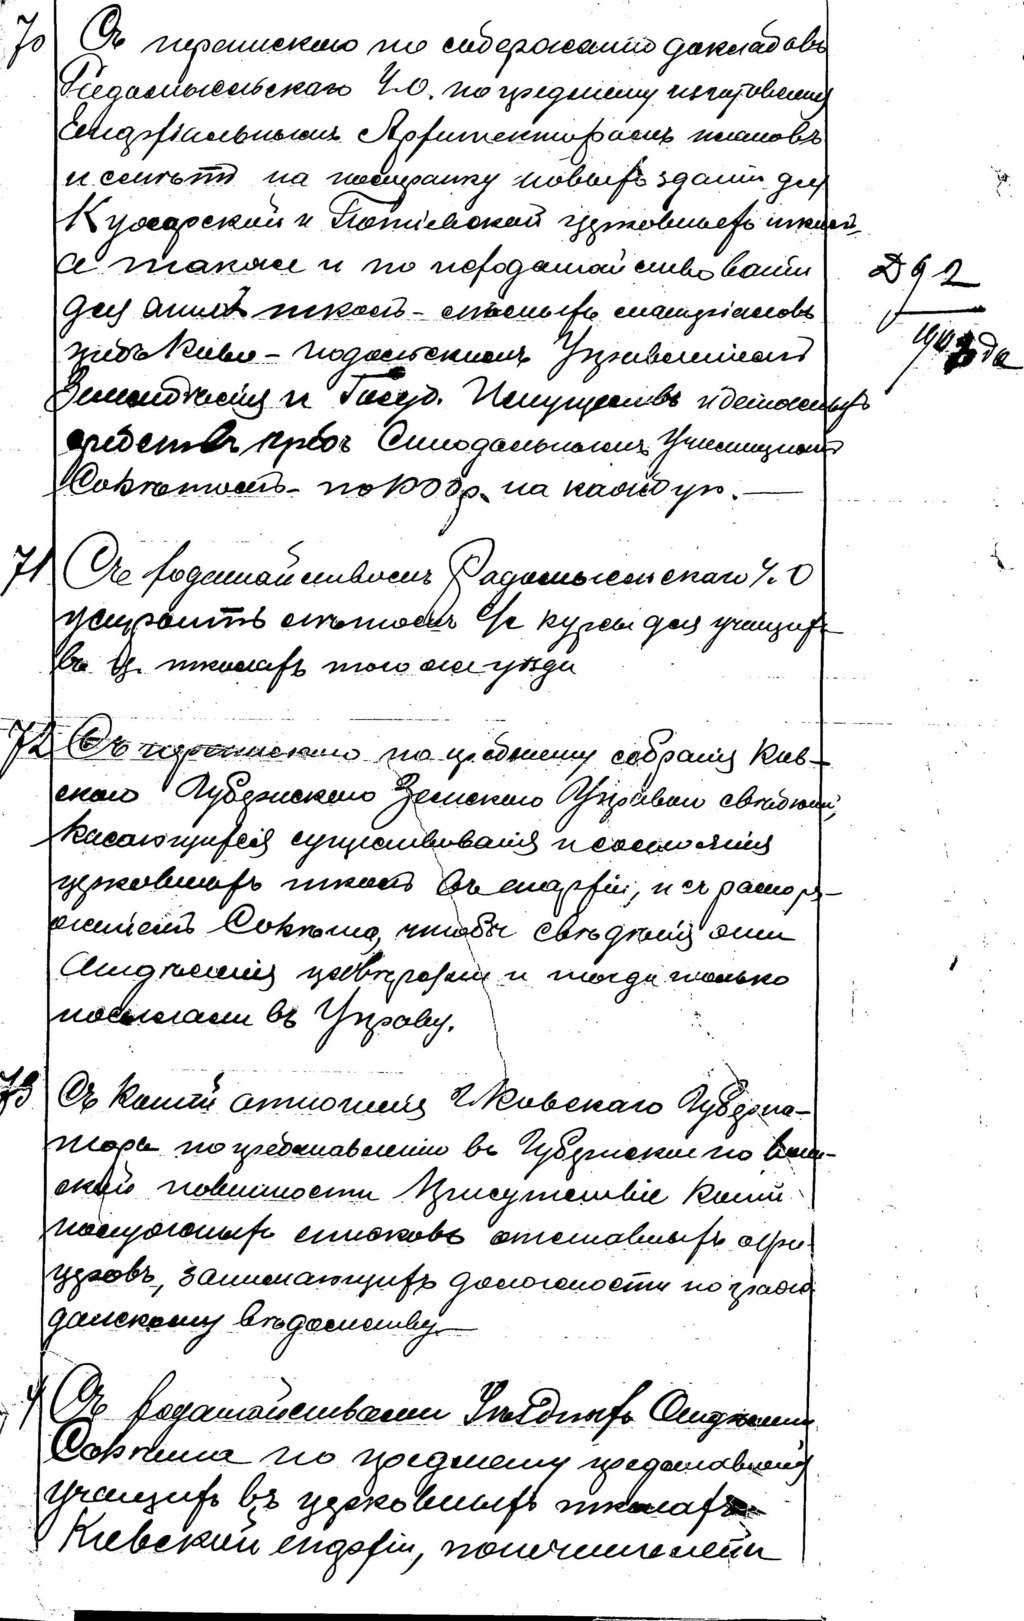 70 Съ перепискою по содержанію докладовъ
Радомысльскаго У.О. по предмету изготовленія
Епархіальнымъ Архитекторомъ плановъ
и смѣтъ на постройку новыхъ зданій для
Кухарской и Потіевской церковныхъ школъ,
а также и по исходатайствованію
для школъ лѣсныхъ матеріаловъ
предъ Кіево-Подольскимъ Управленіемъ
Земледѣлія и Госуд. Имуществъ и денежныхъ
средствъ предъ Синодальнымъ Училищнымъ
Совѣтомъ - по 1000 р. на каждую. —
Д 92
1903 года
71 Съ ходатайствомъ Радомысльскаго У. О
устроить лѣтомъ с/х курсы для учащихъ
въ ц. школахъ того же уѣзда
72 Съ перепискою по предмету собранія Кіев-
скою Губернскою Земскою Управою свѣдѣній,
касающихся существованія и состоянія
церковныхъ школъ въ епархіи, и съ распоря-
женіемъ Совѣта, чтобы свѣдѣнія эти
Отдѣленія провѣряли и тогда только
посылали въ Управу.
73 Съ копіей отношенія Кіевскаго Губерна-
тора по представленію въ Губернское по воин-
ской повинности Присутствіе копій
послужныхъ списковъ отставныхъ офи-
церовъ, занимающихъ должности по граж-
данскому вѣдомству. —
4 Съ ходатайствами Уѣздныхъ Отдѣленій
Совѣта по предмету представленія
учащихъ въ церковныхъ школахъ
Кіевской епархіи, попечителей